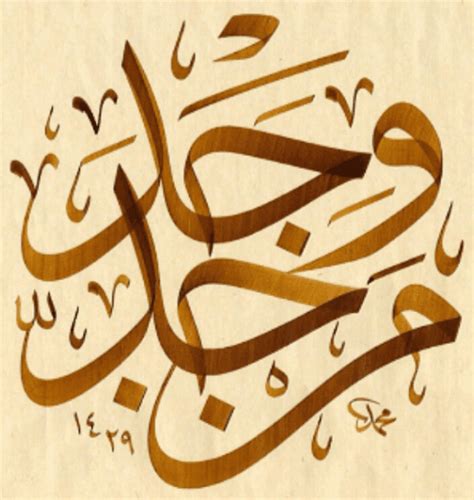 مَنْ جَدَّ
وَجَدَ
محمد
١٤٢٩